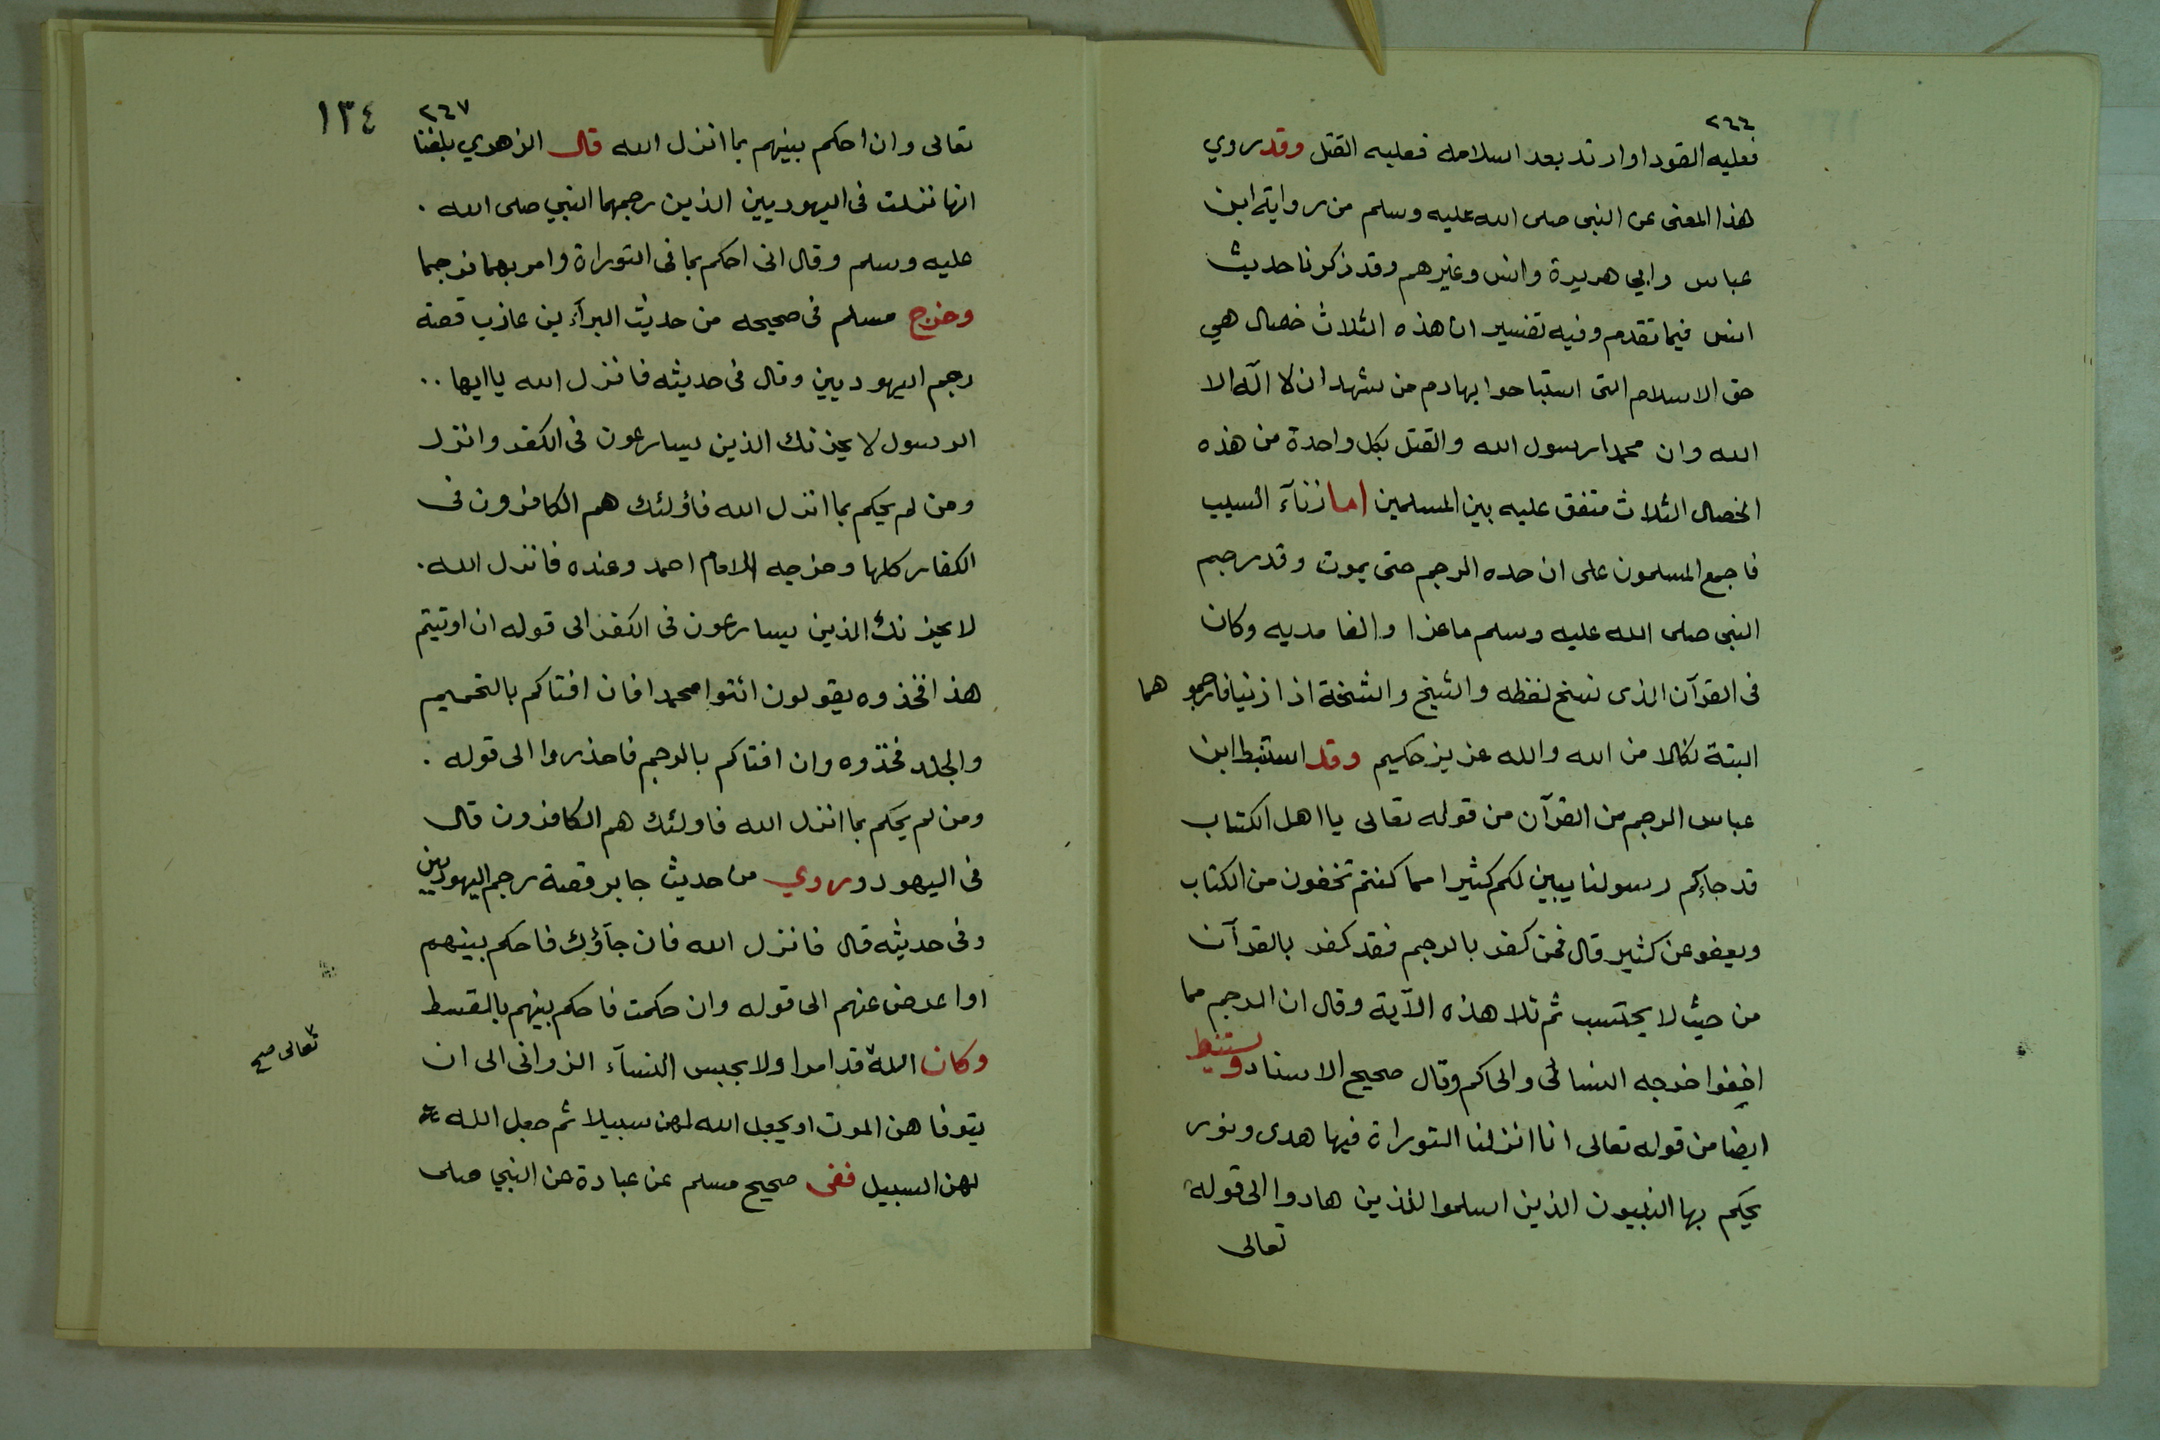 ٢٦٦
فعليه القود او ارتد بعد اسلامه فعليه القتل وقد روي
هذا المعنى عن النبى صلى الله عليه وسلم من رواية ابن
عباس وابي هريرة وانس وغيرهم وقد ذكرنا حديث
انس فيما تقدم وفيه تفسير ان هذه الثلاث خصال هي
حق الاسلام التى استباحوا بها دم من شهد ان لا اله الا
الله وان محمدا رسول الله والقتل بكل واحدة من هذه
الخصال الثلاث متفق عليه بين المسلمين اما زنآء الثيب
فاجمع المسلمون على ان حده الرجم حتى يموت وقد رجم
النبى صلى الله عليه وسلم ماعزا والغامديه وكان
فى القرآن الذى نسخ لفظه والشيخ والشخة اذا زنيا فارجموهما
البتة نكالا من الله والله عزيز حكيم وقد استنبط ابن
عباس الرجم من القرآن من قوله تعالى يا اهل الكتاب
قد جاءكم رسولنا يبين لكم كثيرا مما كنتم تخفون من الكتاب
ويعفو عن كثير قال فمن كفر بالرجم فقد كفر بالقرآن
من حيث لا يحتسب ثم تلا هذه الآية وقال ان الرجم مما
اخفوا خرجه النسائى والحاكم وقال صحيح الاسناد ويستنبط
ايضا من قوله تعالى انا انزلنا التوراة فيها هدى ونور
يحكم بها النبيون الذين اسلموا للذين هادوا الى قوله
تعالى
٢٦٧
١٣٤
تعالى وان احكم بينهم بما انزل الله قال الزهري بلغنا
انها نزلت فى اليهوديين الذين رجمهما النبي صلى الله .
عليه وسلم وقال انى احكم بما فى التوراة وامر بهما فرجما
وخرج مسلم فى صحيحه من حديث البرآء بن عازب قصة
رجم اليهوديين وقال فى حديثه فانزل الله يا ايها ..
الرسول لا يحزنك الذين يسارعون فى الكفر وانزل
ومن لم يحكم بما انزل الله فاؤلئك هم الكافرون فى
الكفار كلها وخرجه الامام احمد وعنده فانزل الله .
لا يحزنك الذين يسارعون فى الكفر الى قوله ان اوتيتم
هذا فخذوه يقولون ائتوا محمدا فان افتاكم بالتحميم
والجلد فخذوه وان افتاكم بالرجم فاحذروا الى قوله .
ومن لم يحكم بما انزل الله فاولئك هم الكافرون قال
فى اليهود وروي من حديث جابر قصة رجم اليهوديين
وفى حديثه قال فانزل الله فان جآؤك فاحكم بينهم
او اعرض عنهم الى قوله وان حكمت فاحكم بينهم بالقسط
وكان الله قد امر اولا بحبس النسآء الزوانى الى ان
تعالى صح
يتوفاهن الموت او يجعل الله لهن سبيلا ثم جعل الله
لهن السبيل ففى صحيح مسلم عن عبادة عن النبي صلى